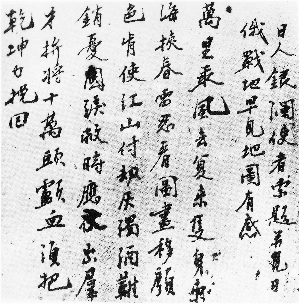 日人銀瀾使者索題并見日
俄戰地早見地圖有感
萬里乘風去复來隻身東
海挾春雷忍看圖畫移顏
色肯使江山付劫灰濁酒難
銷憂國淚救時應仗出羣
才拚將十萬頭顱血須把
乾坤力挽回